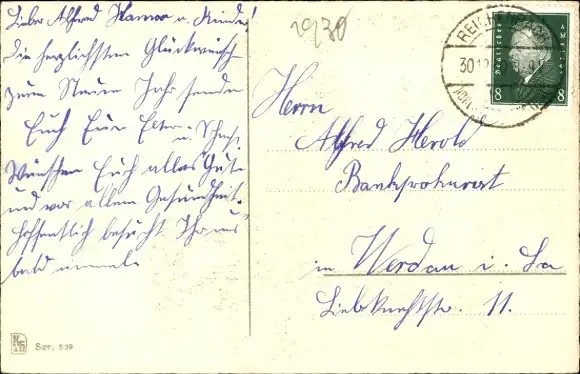 Liebe Alfred Hanna u. Kinder!
Die herzlichsten Glückwünsche
zum Neuen Jahr senden
Euch Eure Eltern u.
Wünschen Euch alles Gute
und vor allem Gesundheit.
Hoffentlich besucht Ihr uns
bald einmal.
1930
30.12.
Deutsches Reich
8 8
Herrn
Alfred Herold
Bankprokurist
in Werdau i. Sa
Liebknechtstr. 11.
Ser. 539